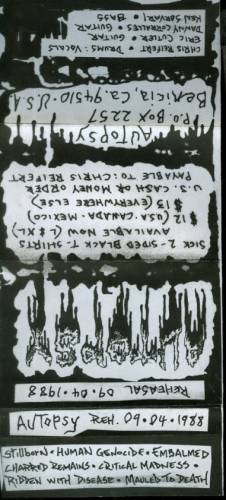 REHEASAL 09·04·1988
AUTOPSY
SICK 2-SIDED BLACK T-SHIRTS
AVAILABLE NOW (L, XL)
$12 (USA, CANADA, MEXICO)
$15 (EVERYWHERE ELSE)
U.S. CASH OR MONEY ORDER
PAYABLE TO: CHRIS REIFERT
AUTOPSY
P.O. BOX 2257
BENICIA, CA. 94510 - U.S.A.
CHRIS REIFERT • DRUMS, VOCALS
ERIC CUTLER • GUITAR
DANNY CORALLES • GUITAR
KEN SORVARI • BASS
AUTOPSY REH. 09.04.1988
STILLBORN • HUMAN GENOCIDE • EMBALMED
CHARRED REMAINS • CRITICAL MADNESS •
RIDDEN WITH DISEASE • MAULED TO DEATH